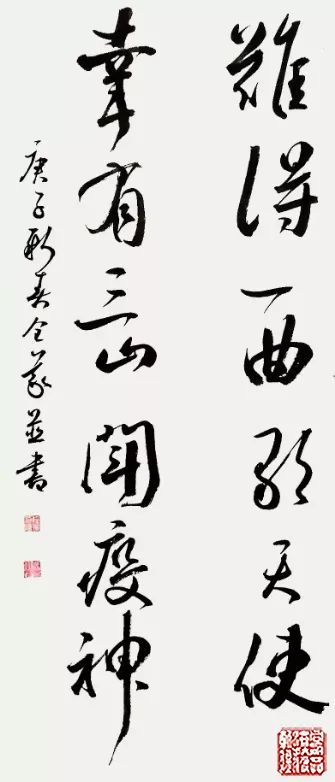 難得一曲歌天使
幸有三山疫神
庚子新春書